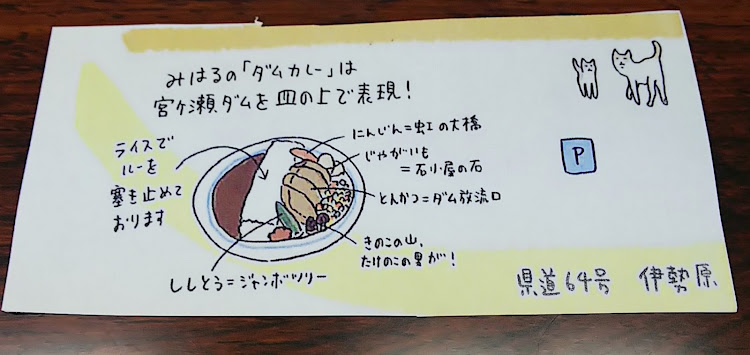 みはるの「ダムカレー」は
宮ヶ瀬ダムを皿の上で表現！
ライスで
ルーを
塞き止めて
おります
にんじん=虹の大橋
じゃがいも
=石小屋の石
とんかつ=ダム放流口
きのこの山、
たけのこの里が！
ししとう=ジャンボツリー
P
県道64号 伊勢原